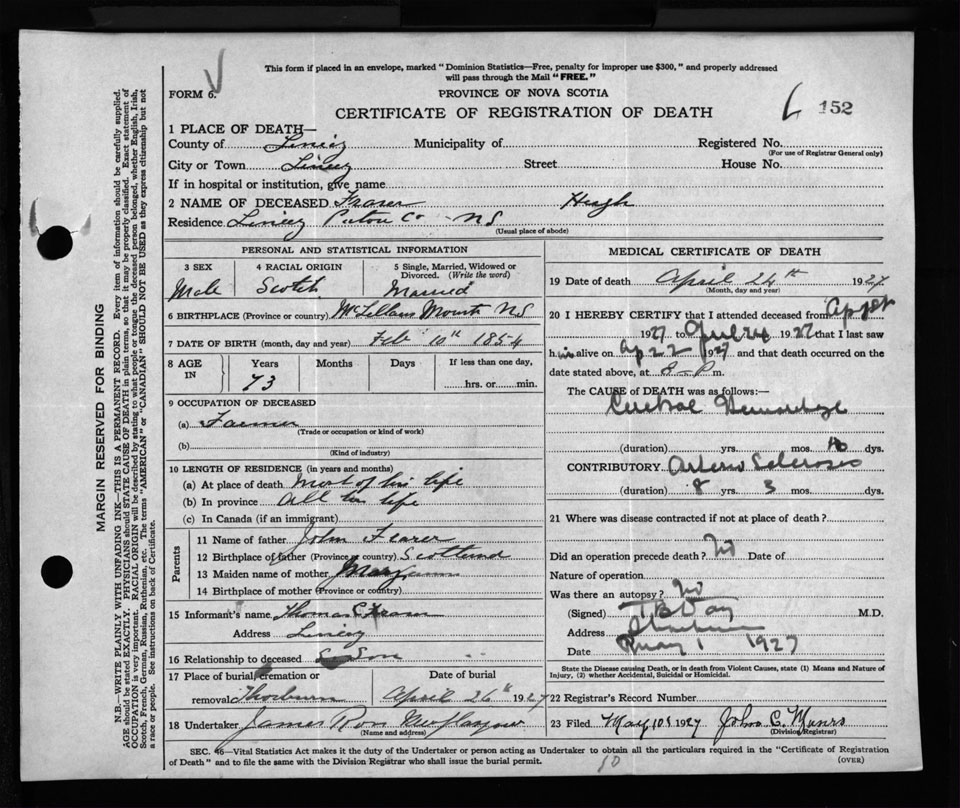 This form if placed in an envelope, marked "Dominion Statistics—Free, penalty for improper use $300," and properly addressed
will pass through the Mail "FREE."
FORM 6.
PROVINCE OF NOVA SCOTIA
CERTIFICATE OF REGISTRATION OF DEATH
152
1 PLACE OF DEATH—
County of Municipality of Registered No.
(For use of Registrar General only)
City or Town Street House No.
If in hospital or institution, give name
2 NAME OF DECEASED Fraser Hugh
Residence Pictou Co NS
(Usual place of abode)
PERSONAL AND STATISTICAL INFORMATION
3 SEX 4 RACIAL ORIGIN 5 Single, Married, Widowed or Divorced. (Write the word)
Male Scotch Married
6 BIRTHPLACE (Province or country) McLellans Mount NS
7 DATE OF BIRTH (month, day and year) Feb 10th 1854
8 AGE IN Years Months Days If less than one day,
73 hrs. or min.
9 OCCUPATION OF DECEASED
(a) Farmer
(Trade or occupation or kind of work)
(b)
(Kind of industry)
10 LENGTH OF RESIDENCE (in years and months)
(a) At place of death Most of his life
(b) In province all his life
(c) In Canada (if an immigrant)
Parents
11 Name of father John Fraser
12 Birthplace of father (Province or country) Scotland
13 Maiden name of mother
14 Birthplace of mother (Province or country)
15 Informant's name Thomas Fraser
Address
16 Relationship to deceased Son
17 Place of burial, cremation or removal Thorburn
Date of burial April 26th 1927
18 Undertaker James New Glasgow
(Name and address)
MEDICAL CERTIFICATE OF DEATH
19 Date of death April 24th 1927
(Month, day and year)
20 I HEREBY CERTIFY that I attended deceased from
1927 to 1927 that I last saw
him alive on Ap 22 1927 and that death occurred on the
date stated above, at 8 P m.
The CAUSE of DEATH was as follows:—
Cerebral Hemorrhage
(duration) yrs. mos. dys.
CONTRIBUTORY Arterio Sclerosis
(duration) 8 yrs. 3 mos. dys.
21 Where was disease contracted if not at place of death?
Did an operation precede death? No Date of
Nature of operation
Was there an autopsy? No
(Signed) M.D.
Address
Date May 1 1927
State the Disease causing Death, or in death from Violent Causes, state (1) Means and Nature of
Injury, (2) whether Accidental, Suicidal or Homicidal.
22 Registrar's Record Number
23 Filed May 10th 1927 John C. Munro
(Division Registrar)
SEC. 46—Vital Statistics Act makes it the duty of the Undertaker or person acting as Undertaker to obtain all the particulars required in the "Certificate of Registration
of Death" and to file the same with the Division Registrar who shall issue the burial permit.
(OVER)
10
MARGIN RESERVED FOR BINDING
N.B.—WRITE PLAINLY WITH UNFADING INK—THIS IS A PERMANENT RECORD. Every item of information should be carefully supplied.
AGE should be stated EXACTLY. PHYSICIANS should STATE CAUSE OF DEATH in plain terms, so that it may be properly classified. Exact statement of
OCCUPATION is very important. RACIAL ORIGIN will be described by stating to what people or tongue the deceased person belonged, whether English, Irish,
Scotch, French, German, Russian, Ruthenian, etc. The terms "AMERICAN" or "CANADIAN" SHOULD NOT BE USED as they express citizenship but not
a race or people. See instructions on back of Certificate.